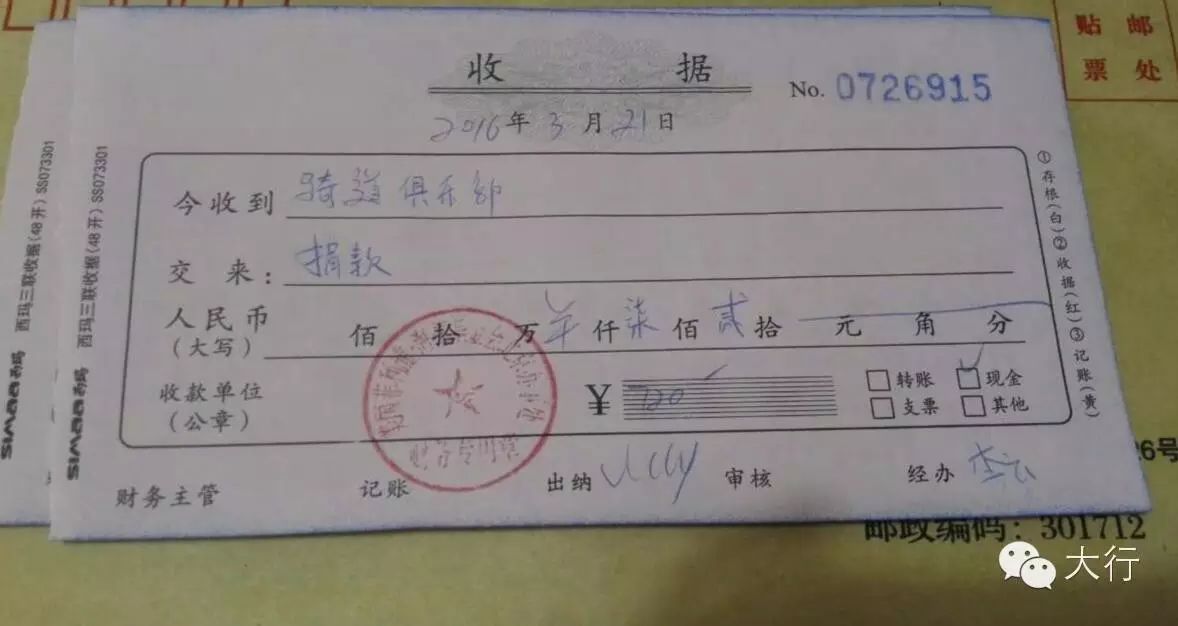 贴邮
票处
收据
No. 0726915
2016年3月21日
今收到 骑道俱乐部
交来: 捐款
人民币
(大写)
佰 拾 万 仟 柒 佰 贰 拾 元 角 分
收款单位
(公章)
¥ 720
转账 现金
支票 其他
财务主管 记账 出纳 审核 经办
①存根(白)②收据(红)③记账(黄)
simaa 西玛 西玛三联收据(48开) SS073301
simaa 西玛 西玛三联收据(48开) SS073301
26号
邮政编码: 301712
大行